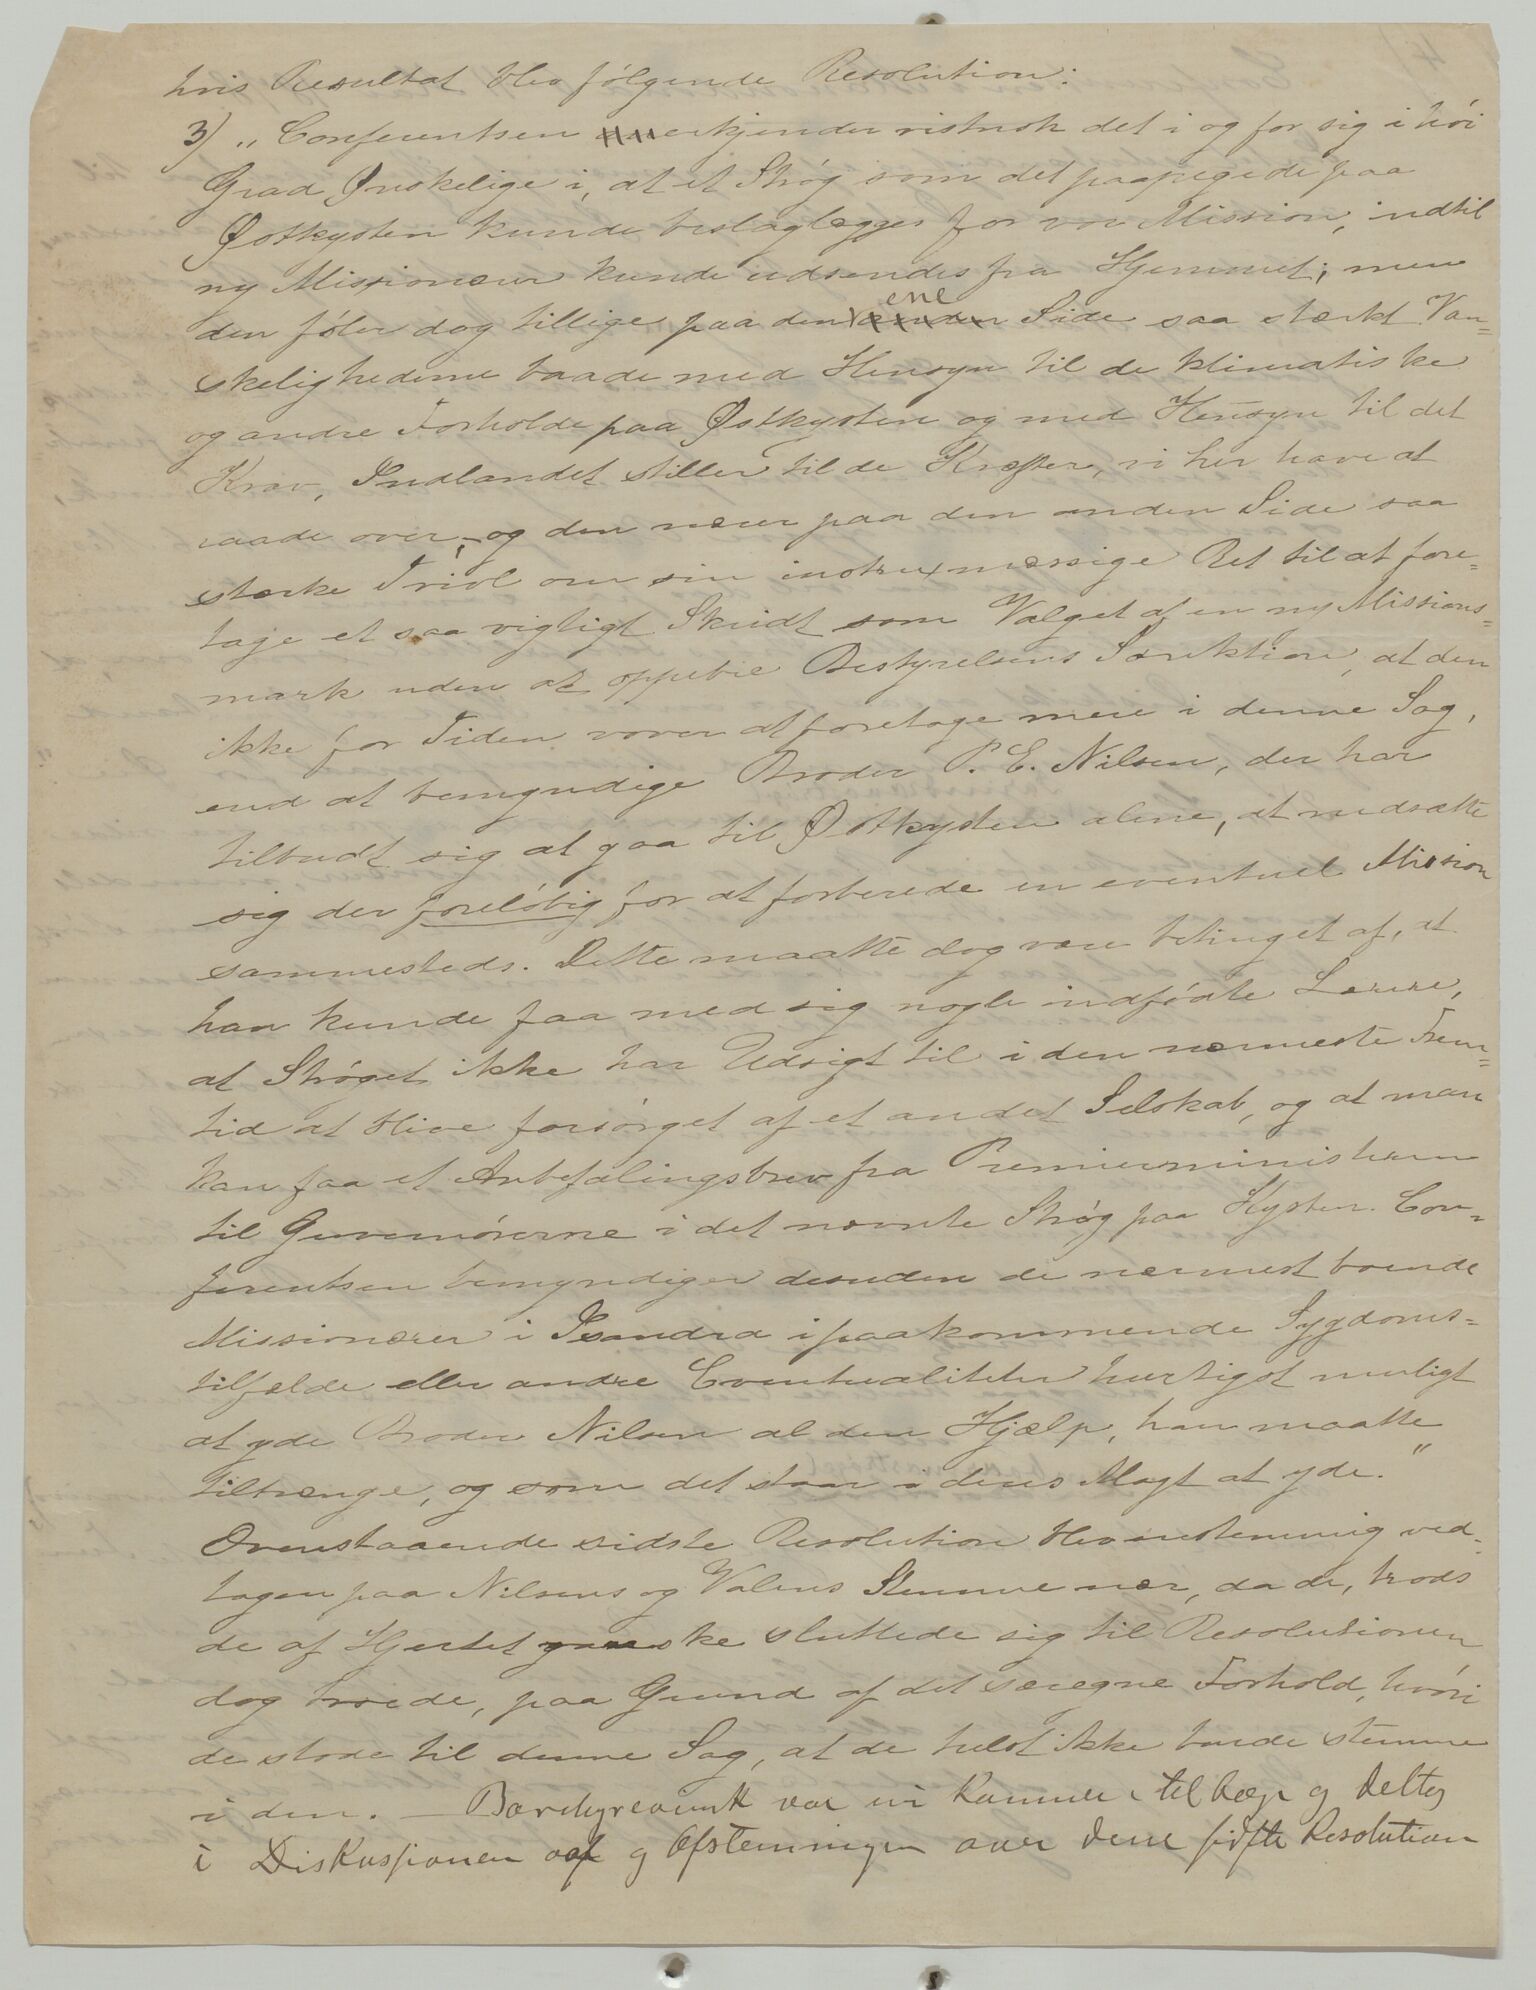 hvis Resultat blev følgende Resolution:
3) „Conferentsen erkjender vistnok det i og for sig i høi
Grad Ønskelige i, at et Strøg som det paapegede paa
Østkysten kunde beslaglægges for vor Mission, indtil
ny Missionærer kunde udsendes fra Hjemmet; men
den føler dog tillige paa den ene Side saa stærkt Van=
skelighederne baade med Hensyn til de klimatiske
og andre Forholde paa Østkysten og med Hensyn til det
Krav, Indlandet stiller til de Kræfter, vi her have at
raade over, og den nærer paa den anden Side saa
stærke Tvivl om sin instruxmæssige Ret til at fore=
tage et saa vigtigt Skridt som Valget af en ny Missions=
mark uden at oppebie Bestyrelsens Sanktion, at den
ikke for Tiden vover at foretage mere i denne Sag,
end at bemyndige Broder P. E. Nilsen, der har
tilbudt sig at gaa til Østkysten alene, at nedsætte
sig der foreløbig for at forberede en eventuel Mission
sammesteds. Dette maatte dog være betinget af, at
han kunde faa med sig nogle indfødte Lærere,
at Strøget ikke har Udsigt til i den nærmeste Frem=
tid at blive forsørget af et andet Selskab, og at man
kan faa et Anbefalingsbrev fra Premierministeren
til Guvernørerne i det nævnte Strøg paa Kysten. Con=
ferentsen bemyndiger desuden de nærmest boende
Missionærer i Isandra i paakommende Sygdoms=
tilfælde eller andre Eventualiteter hurtigst muligt
at yde Broder Nilsen al den Hjælp, han maatte
tiltrænge, og som det staar i deres Magt at yde."
Ovenstaaende sidste Resolution blev enstemmig ved=
tagen paa Nilsens og Valens Stemme nær, da de, trods
de af Hjertet ganske sluttede sig til Resolutionen
dog troede, paa Grund af det særegne Forhold, hvori
de stode til denne Sag, at de helst ikke burde stemme
i den. — Borchgrevink var nu kommen tilbage og deltog
i Diskussionen og Afstemningen over denne sidste Resolution